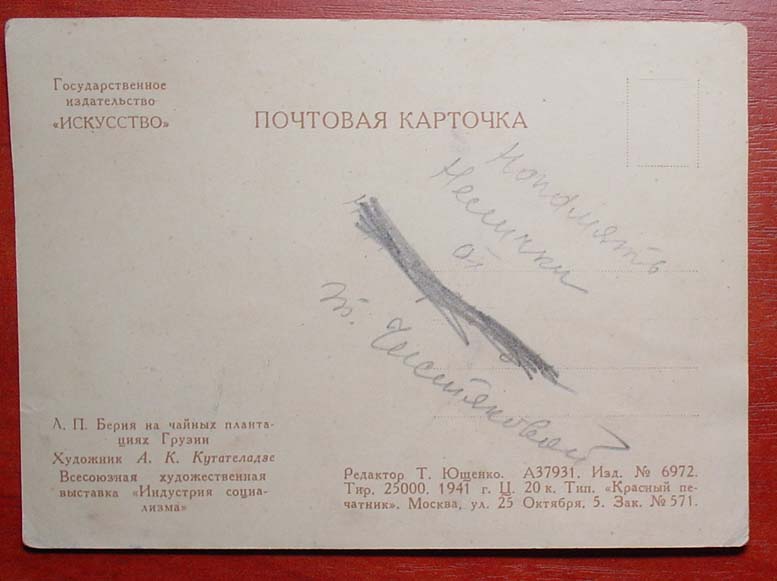 Государственное
издательство
«ИСКУССТВО»
ПОЧТОВАЯ КАРТОЧКА
от
т. Чистяковой
Л. П. Берия на чайных планта-
циях Грузии
Художник А. К. Кутателадзе
Всесоюзная художественная
выставка «Индустрия социа-
лизма»
Редактор Т. Ющенко. А37931. Изд. № 6972.
Тир. 25000. 1941 г. Ц. 20 к. Тип. «Красный пе-
чатник». Москва, ул. 25 Октября, 5. Зак. № 571.